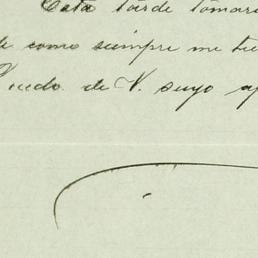 Esta tarde tomar
como siempre me tie
Quedo de V. suyo a